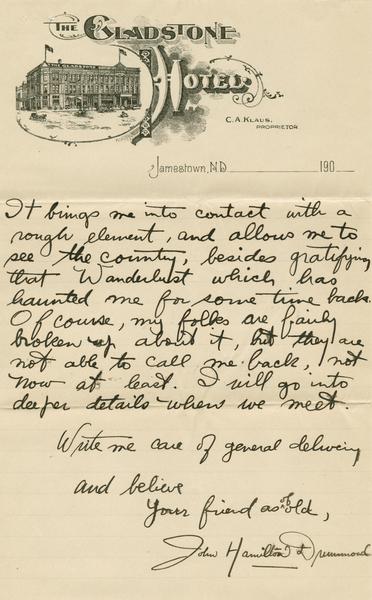 THE GLADSTONE
HOTEL
THE GLADSTONE
C. A. KLAUS,
PROPRIETOR
Jamestown, N.D. 190
It brings me into contact with a
rough element, and allows me to
see the country, besides gratifying
that Wanderlust which has
haunted me for some time back.
Of course, my folks are fairly
broken up about it, but they are
not able to call me back, not
now at least. I will go into
deeper details when we meet.
Write me care of general delivery
and believe
Your friend as of old,
John Hamilton Drummond